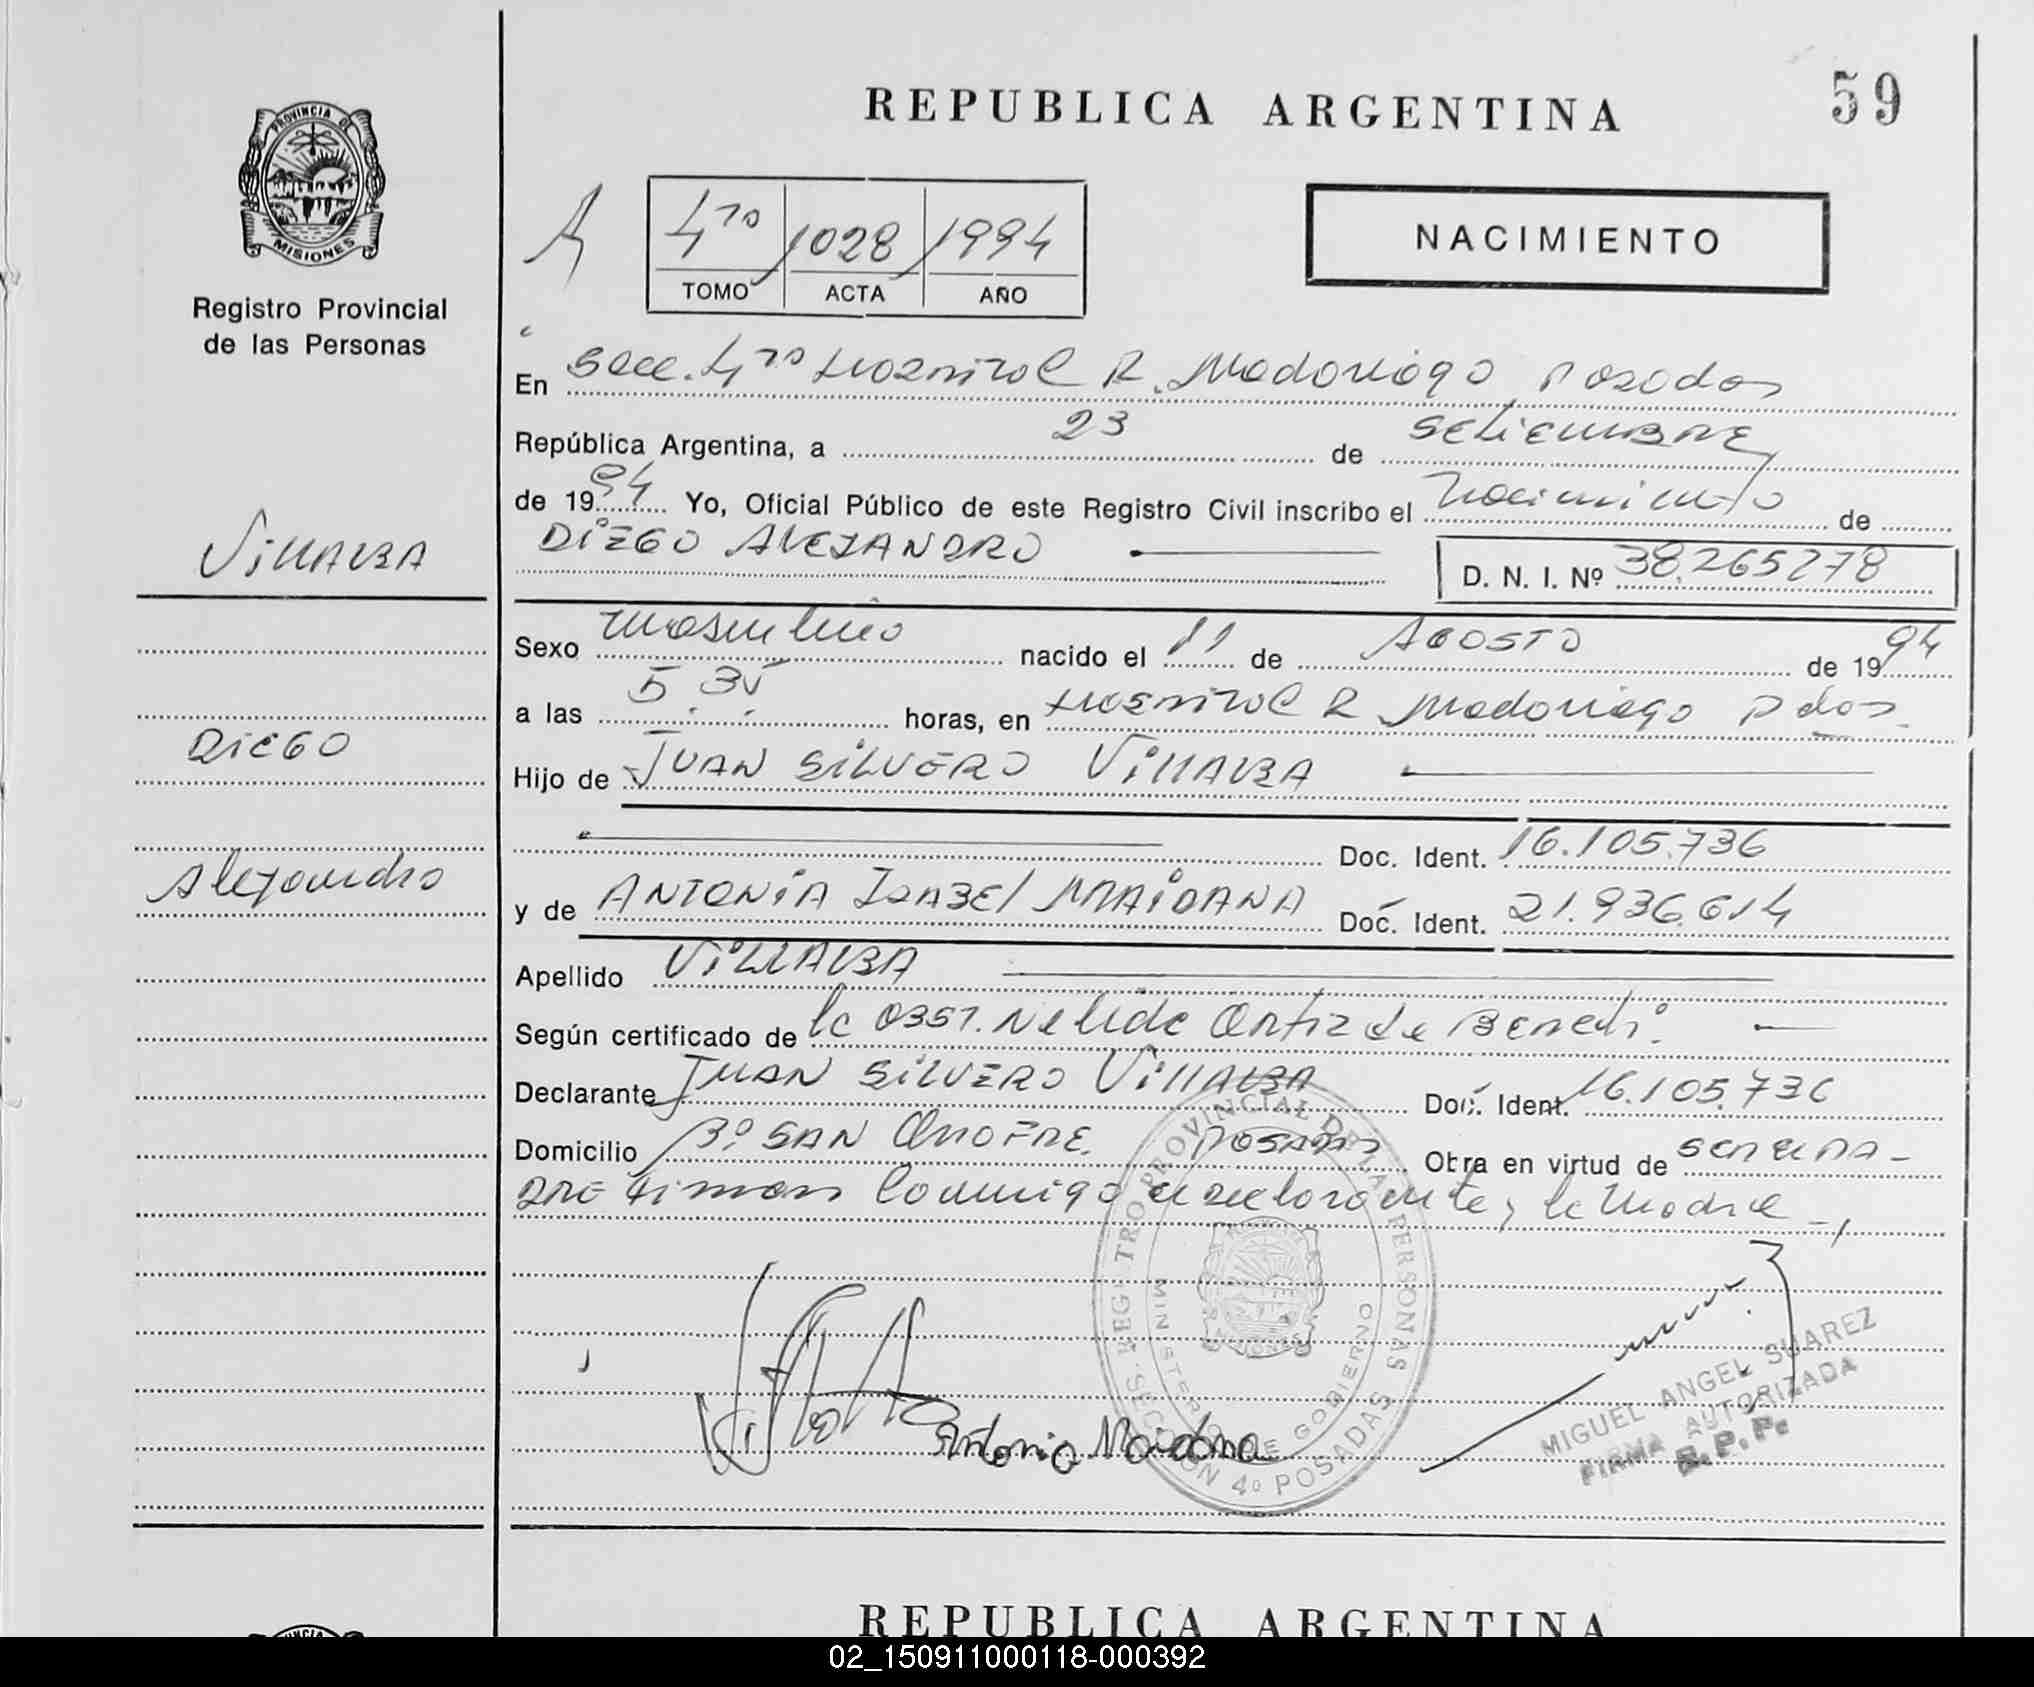 REPUBLICA ARGENTINA
59
PROVINCIA DE
MISIONES
Registro Provincial
de las Personas
A
4to 1028 1994
TOMO ACTA AÑO
NACIMIENTO
En Secc. 4to Hospital R. Madariaga Posadas
República Argentina, a 23 de SETIEMBRE
de 1994 Yo, Oficial Público de este Registro Civil inscribo el nacimiento de
DIEGO ALEJANDRO
D. N. I. Nº 38.265278
VILLALBA
DIEGO
Alejandro
Sexo masculino nacido el 11 de AGOSTO de 1994
a las 5.35 horas, en Hospital R Madariaga Pdas.
Hijo de JUAN SILVERO VILLALBA
Doc. Ident. 16.105.736
y de ANTONIA ISABEL MAIDANA Doc. Ident. 21.936.614
Apellido VILLALBA
Según certificado de la OBST. Nelida Ortiz de Benedi
Declarante JUAN SILVERO VILLALBA Doc. Ident. 16.105.736
Domicilio Bº SAN ONOFRE. POSADAS Obra en virtud de SER EL PA-
DRE Firman conmigo el declarante y la madre
REGISTRO PROVINCIAL DE LAS PERSONAS
MINISTERIO DE GOBIERNO
MISIONES
SECCION 4º POSADAS
Antonia Maidana
MIGUEL ANGEL SUAREZ
FIRMA AUTORIZADA
R.P.P.
REPUBLICA ARGENTINA
02_150911000118-000392